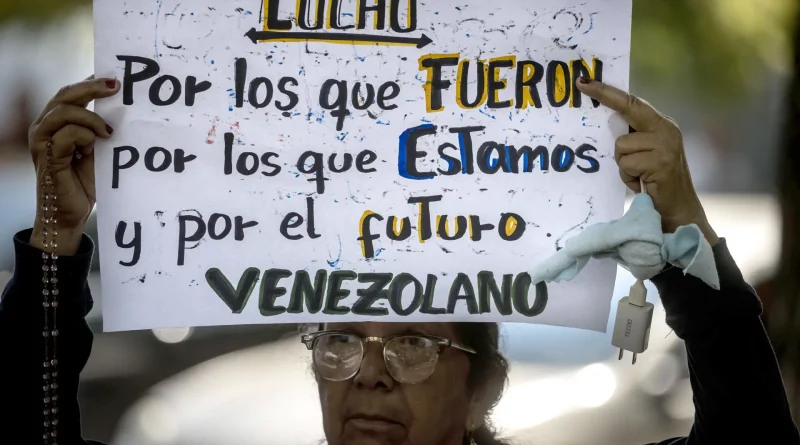 LUCHO
Por los que FUERON
por los que Estamos
y por el futuro
VENEZOLANO
TECNO